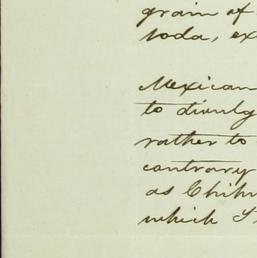 grain of
soda, ex
Mexican
to divulg
rather to
contrary
as Chihu
which I